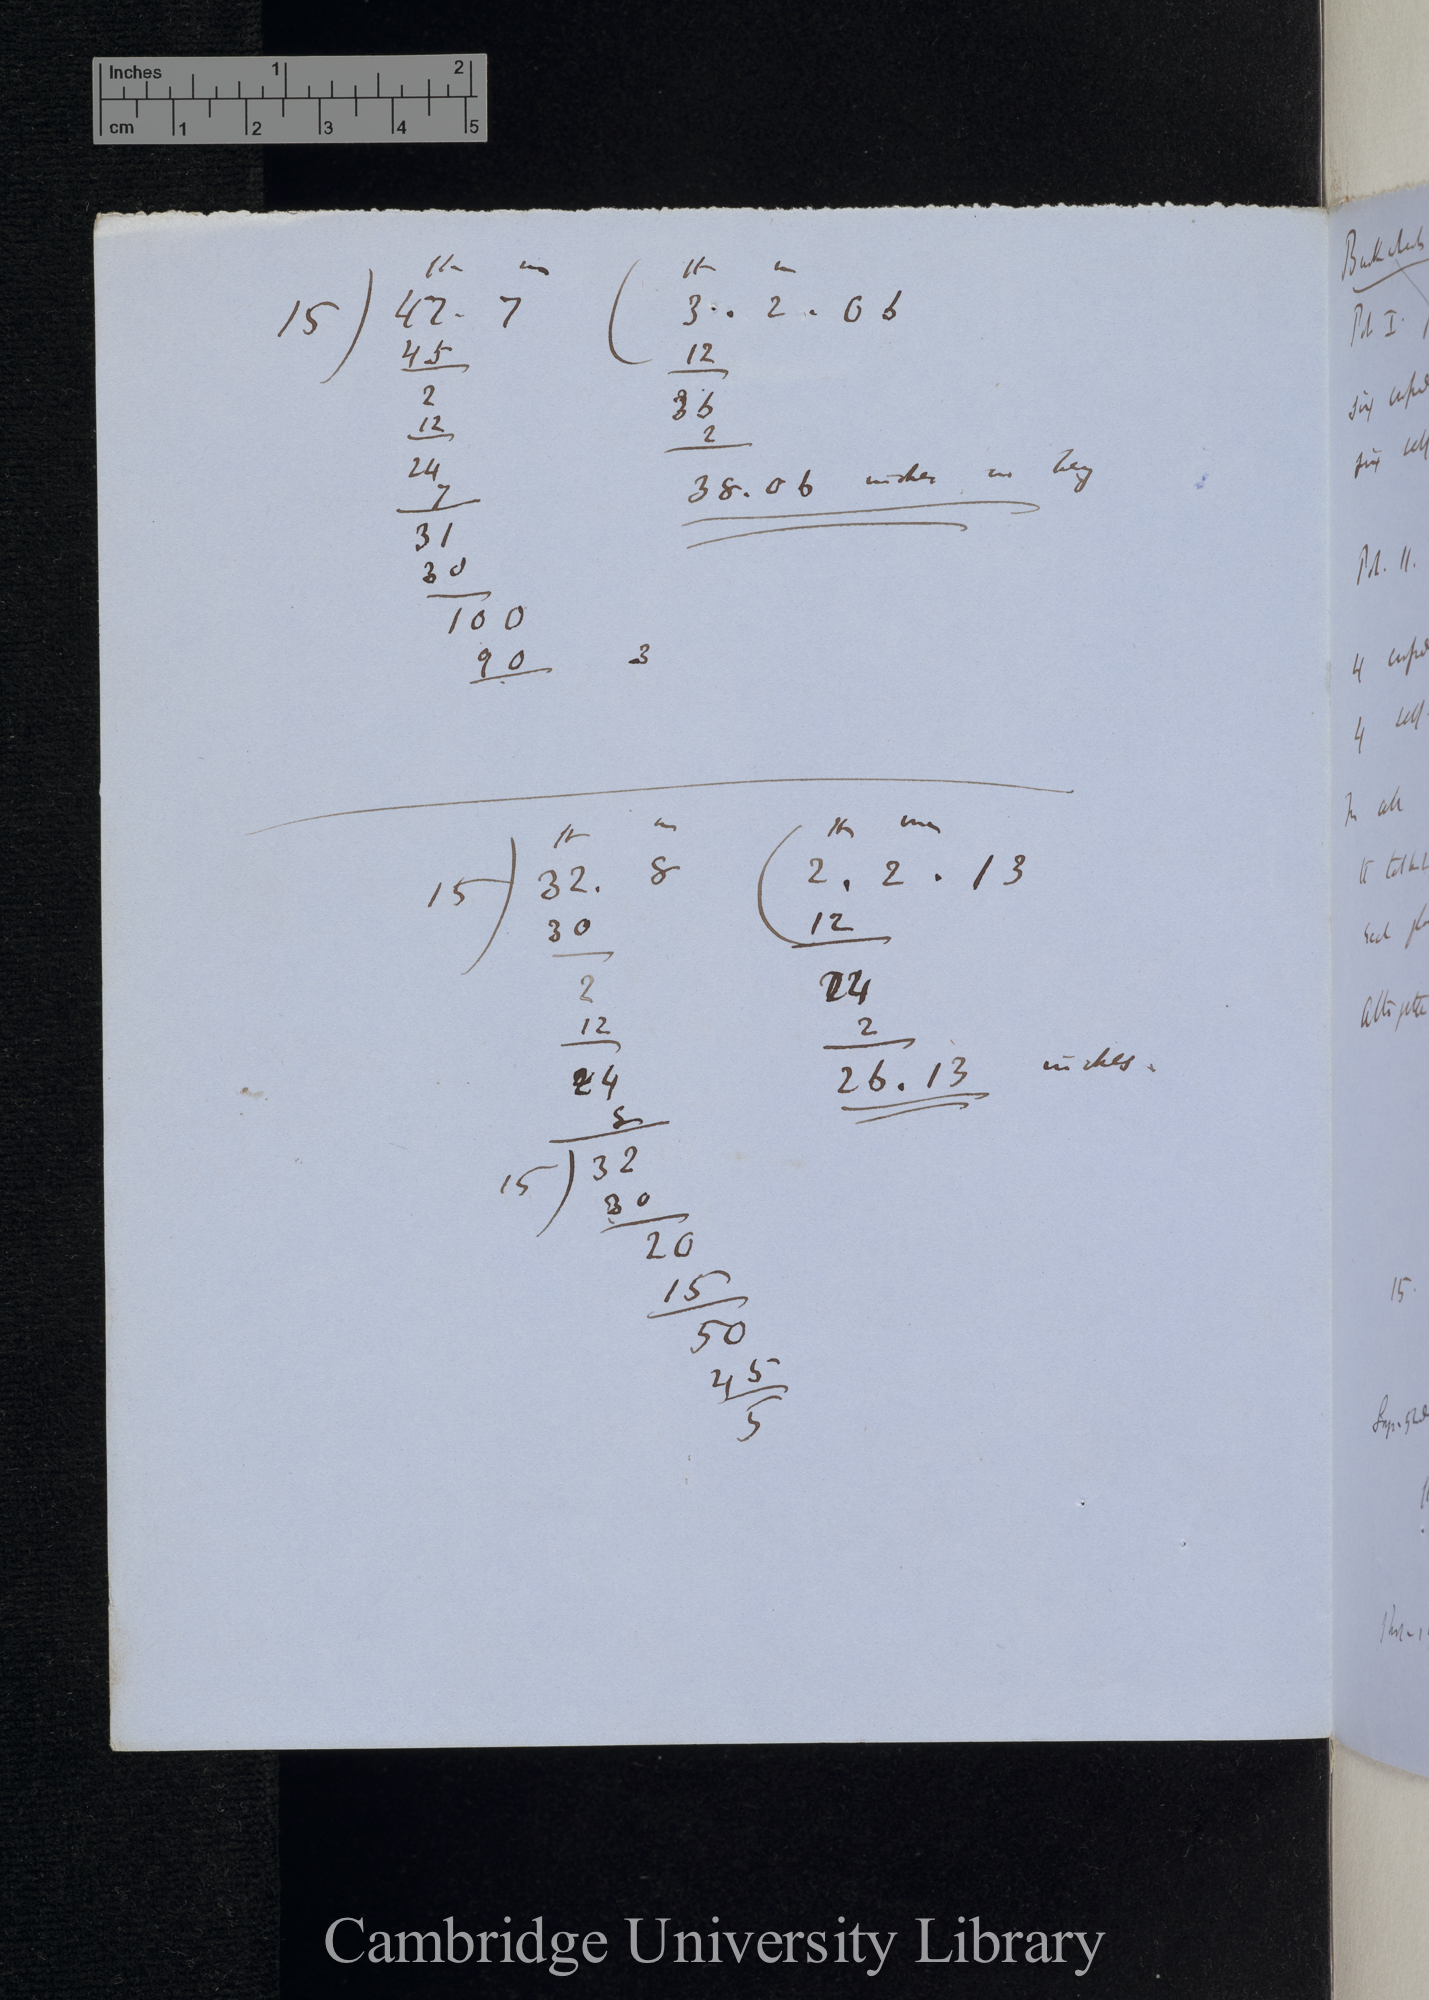 Inches 1 2
cm 1 2 3 4 5
ft in ft in
15 ) 47. 7 ( 3. . 2 . 06
45 12
2 36
12 2
24 38.06 inches in
7
31
30
100
90 3
ft in ft in
15 ) 32. 8 ( 2 . 2 . 13
30 12
2 24
12 2
24 26.13 inches.
8
15 ) 32
30
20
15
50
45
5
Pot I.
six
six
Pot. II.
4
4
In all
15.
Cambridge University Library